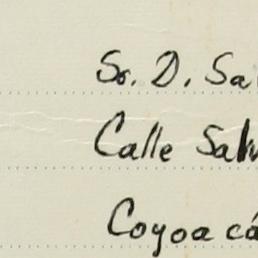 Sr. D. Sa
Calle Salv
Coyoacá